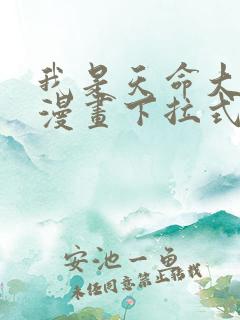 我是天命大
漫畫下拉式
安池一鱼
未经同意禁止转载